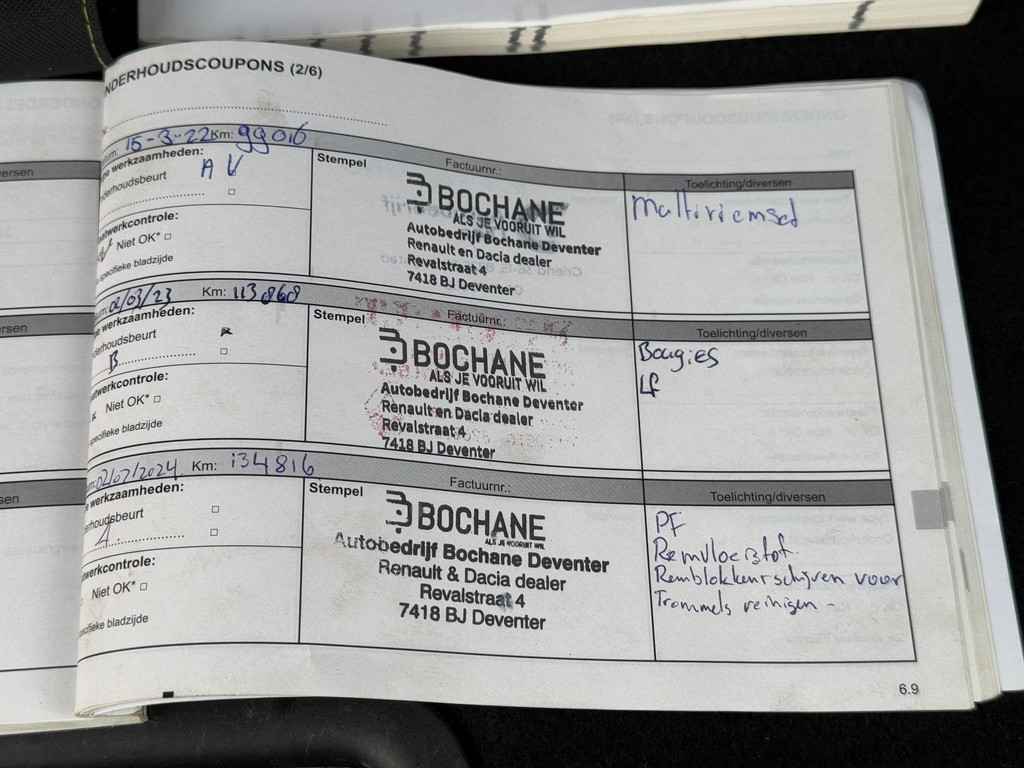 NDERHOUDSCOUPONS (2/6)
15-3-22 Km: 99016
werkzaamheden:
derhoudsbeurt A V
werkcontrole:
Niet OK* □
specifieke bladzijde
Stempel Factuurnr.:
BOCHANE
ALS JE VOORUIT WIL
Autobedrijf Bochane Deventer
Renault en Dacia dealer
Revalstraat 4
7418 BJ Deventer
Toelichting/diversen
Multiriemset
02/03/23 Km: 113868
werkzaamheden:
erhoudsbeurt
B
twerkcontrole:
Niet OK* □
pecifieke bladzijde
Stempel Factuurnr.:
BOCHANE
ALS JE VOORUIT WIL
Autobedrijf Bochane Deventer
Renault en Dacia dealer
Revalstraat 4
7418 BJ Deventer
Toelichting/diversen
Bougies
Lf
02/07/2024 Km: 134816
e werkzaamheden:
rhoudsbeurt □
A. □
werkcontrole:
Niet OK* □
cifieke bladzijde
Stempel Factuurnr.:
BOCHANE
ALS JE VOORUIT WIL
Autobedrijf Bochane Deventer
Renault & Dacia dealer
Revalstraat 4
7418 BJ Deventer
Toelichting/diversen
PF
Remvloeistof.
Remblokken+schijven voor
Trommels reinigen -
6.9
ersen
ersen
sen